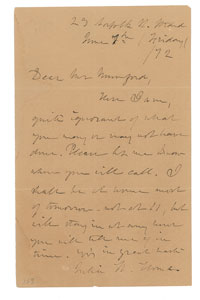 June 7th (Friday)
/72
Dear Mr Mumford,
Here I am,
quite ignorant of what
you may or may not have
done. Please let me know
when you will call. I
shall be at home most
of tomorrow not at it, but
will stay in at any hour
you will tell me of in
time. Yrs in great haste